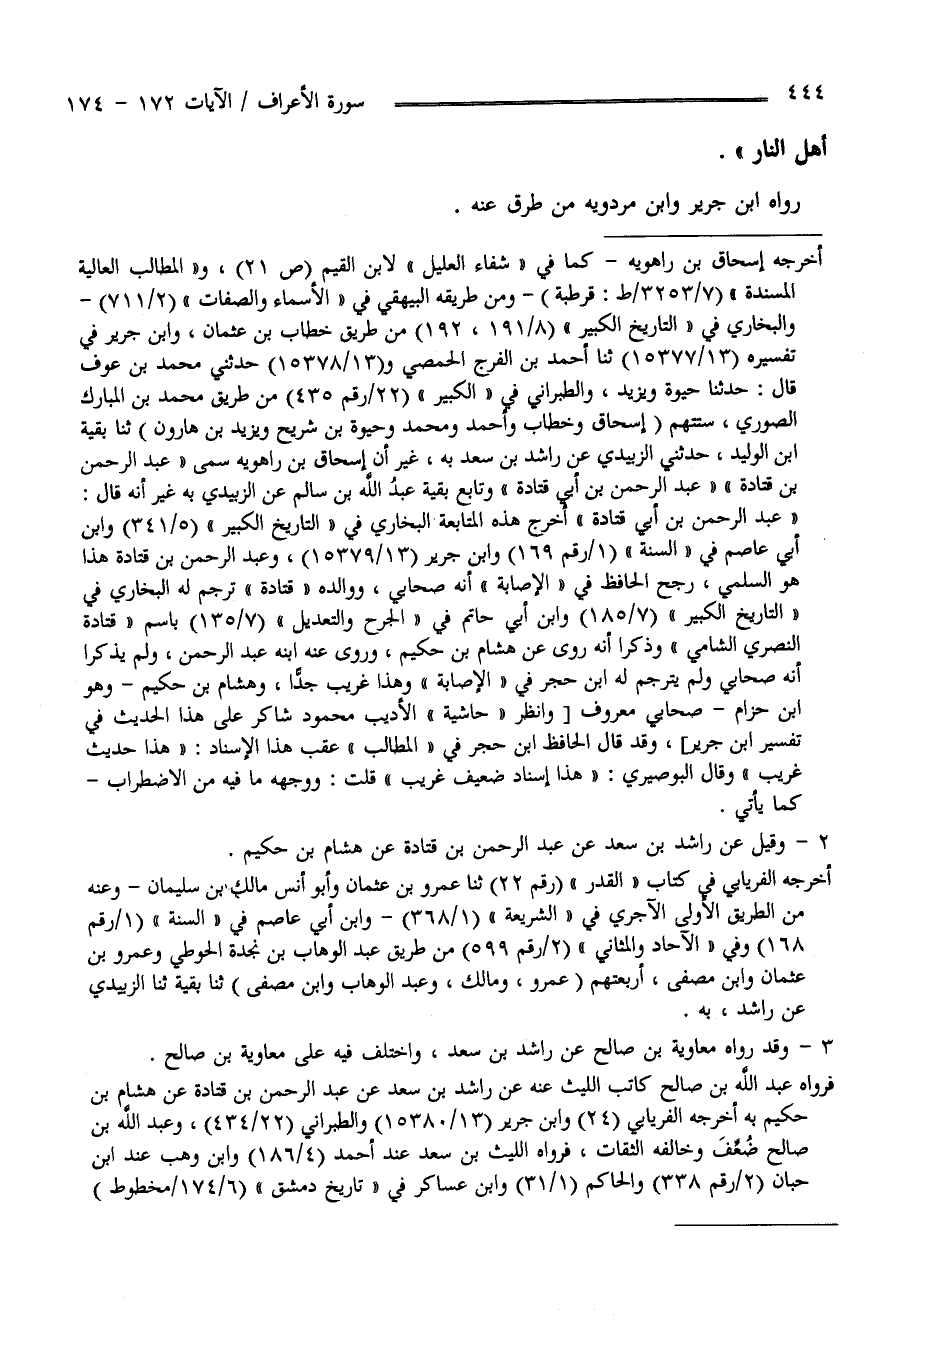 ٤٤٤ سورة الأعراف / الآيات ١٧٢ - ١٧٤
أهل النار » .
رواه ابن جرير وابن مردويه من طرق عنه .
أخرجه إسحاق بن راهويه - كما في « شفاء العليل » لابن القيم (ص ٢١) ، و« المطالب العالية
المسندة » (٣٢٥٣/٧/ط : قرطبة ) - ومن طريقه البيهقي في « الأسماء والصفات » (٧١١/٢) -
والبخاري في « التاريخ الكبير » (١٩١/٨ ، ١٩٢) من طريق خطاب بن عثمان ، وابن جرير في
تفسيره (١٥٣٧٧/١٣) ثنا أحمد بن الفرج الحمصي و(١٥٣٧٨/١٣) حدثني محمد بن عوف
قال : حدثنا حيوة ويزيد ، والطبراني في « الكبير » (٢٢/رقم ٤٣٥) من طريق محمد بن المبارك
الصوري ، ستتهم ( إسحاق وخطاب وأحمد ومحمد وحيوة بن شريح ويزيد بن هارون ) ثنا بقية
ابن الوليد ، حدثني الزبيدي عن راشد بن سعد به ، غير أن إسحاق بن راهويه سمى « عبد الرحمن
بن قتادة » « عبد الرحمن بن أبي قتادة » وتابع بقية عبدُ اللَّه بن سالم عن الزبيدي به غير أنه قال :
« عبد الرحمن بن أبي قتادة » أخرج هذه المتابعة البخاري في « التاريخ الكبير » (٣٤١/٥) وابن
أبي عاصم في « السنة » (١/رقم ١٦٩) وابن جرير (١٥٣٧٩/١٣) ، وعبد الرحمن بن قتادة هذا
هو السلمي ، رجح الحافظ في « الإصابة » أنه صحابي ، ووالده « قتادة » ترجم له البخاري في
« التاريخ الكبير » (١٨٥/٧) وابن أبي حاتم في « الجرح والتعديل » (١٣٥/٧) باسم « قتادة
النصري الشامي » وذكرا أنه روى عن هشام بن حكيم ، وروى عنه ابنه عبد الرحمن ، ولم يذكرا
أنه صحابي ولم يترجم له ابن حجر في « الإصابة » وهذا غريب جدًّا ، وهشام بن حكيم - وهو
ابن حزام - صحابي معروف [ وانظر « حاشية » الأديب محمود شاكر على هذا الحديث في
تفسير ابن جرير] ، وقد قال الحافظ ابن حجر في « المطالب » عقب هذا الإسناد : « هذا حديث
غريب » وقال البوصيري : « هذا إسناد ضعيف غريب » قلت : ووجهه ما فيه من الاضطراب -
كما يأتي .
٢ - وقيل عن راشد بن سعد عن عبد الرحمن بن قتادة عن هشام بن حكيم .
أخرجه الفريابي في كتاب « القدر » (رقم ٢٢) ثنا عمرو بن عثمان وأبو أنس مالك بن سليمان - وعنه
من الطريق الأولى الآجري في « الشريعة » (٣٦٨/١) - وابن أبي عاصم في « السنة » (١/رقم
١٦٨) وفي « الآحاد والمثاني » (٢/رقم ٥٩٩) من طريق عبد الوهاب بن نجدة الحوطي وعمرو بن
عثمان وابن مصفى ، أربعتهم ( عمرو ، ومالك ، وعبد الوهاب وابن مصفى ) ثنا بقية ثنا الزبيدي
عن راشد ، به .
٣ - وقد رواه معاوية بن صالح عن راشد بن سعد ، واختلف فيه على معاوية بن صالح .
فرواه عبد اللَّه بن صالح كاتب الليث عنه عن راشد بن سعد عن عبد الرحمن بن قتادة عن هشام بن
حكيم به أخرجه الفريابي (٢٤) وابن جرير (١٥٣٨٠/١٣) والطبراني (٤٣٤/٢٢) ، وعبد اللَّه بن
صالح ضُعِّفَ وخالفه الثقات ، فرواه الليث بن سعد عند أحمد (١٨٦/٤) وابن وهب عند ابن
حبان (٢/رقم ٣٣٨) والحاكم (٣١/١) وابن عساكر في « تاريخ دمشق » (١٧٤/٦/مخطوط )